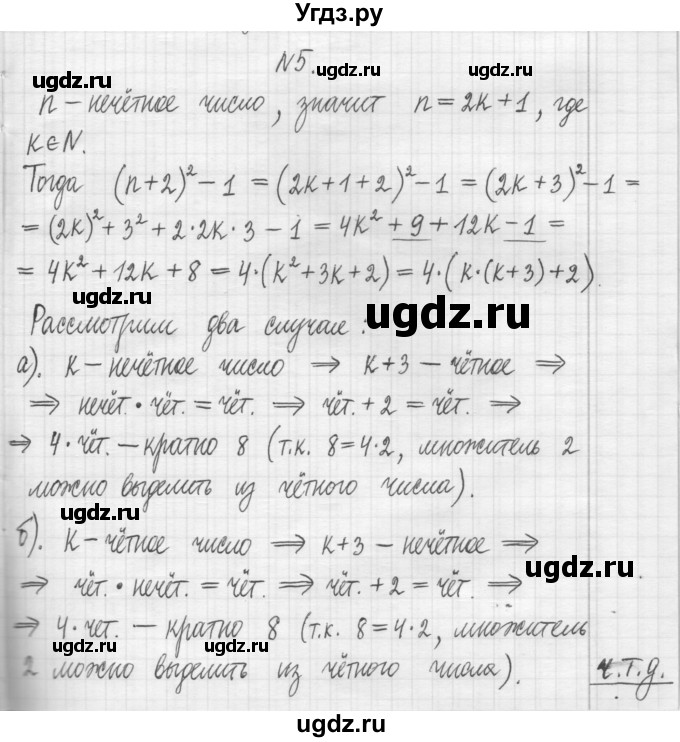 Угдз.ру
N5.
ugdz.ru ugdz.ru ugdz.ru
n – нечётное число, значит n = 2k + 1, где
k ∈ N.
ugdz.ru
Тогда (n+2)² – 1 = (2k+1+2)² – 1 = (2k+3)² – 1 =
= (2k)² + 3² + 2·2k·3 – 1 = 4k² + 9 + 12k – 1 =
= 4k² + 12k + 8 = 4·(k² + 3k + 2) = 4·(k·(k+3)+2).
ugdz.ru ugdz.ru
Рассмотрим два случае:
а). k – нечётное число ⇒ k+3 – чётное ⇒
⇒ нечёт.·чёт. = чёт. ⇒ чёт. + 2 = чёт. ⇒
⇒ 4·чёт. – кратно 8 (т.к. 8=4·2, множитель 2
можно выделить из чётного числа).
ugdz.ru ugdz.ru
б). k – чётное число ⇒ k+3 – нечётное ⇒
ugdz.ru
⇒ чёт.·нечёт. = чёт. ⇒ чёт. + 2 = чёт. ⇒
ugdz.ru ugdz.ru
⇒ 4·чет. – кратно 8 (т.к. 8=4·2, множитель
2 можно выделить из чётного числа). ч.т.д.
ugdz.ru
ugdz.ru